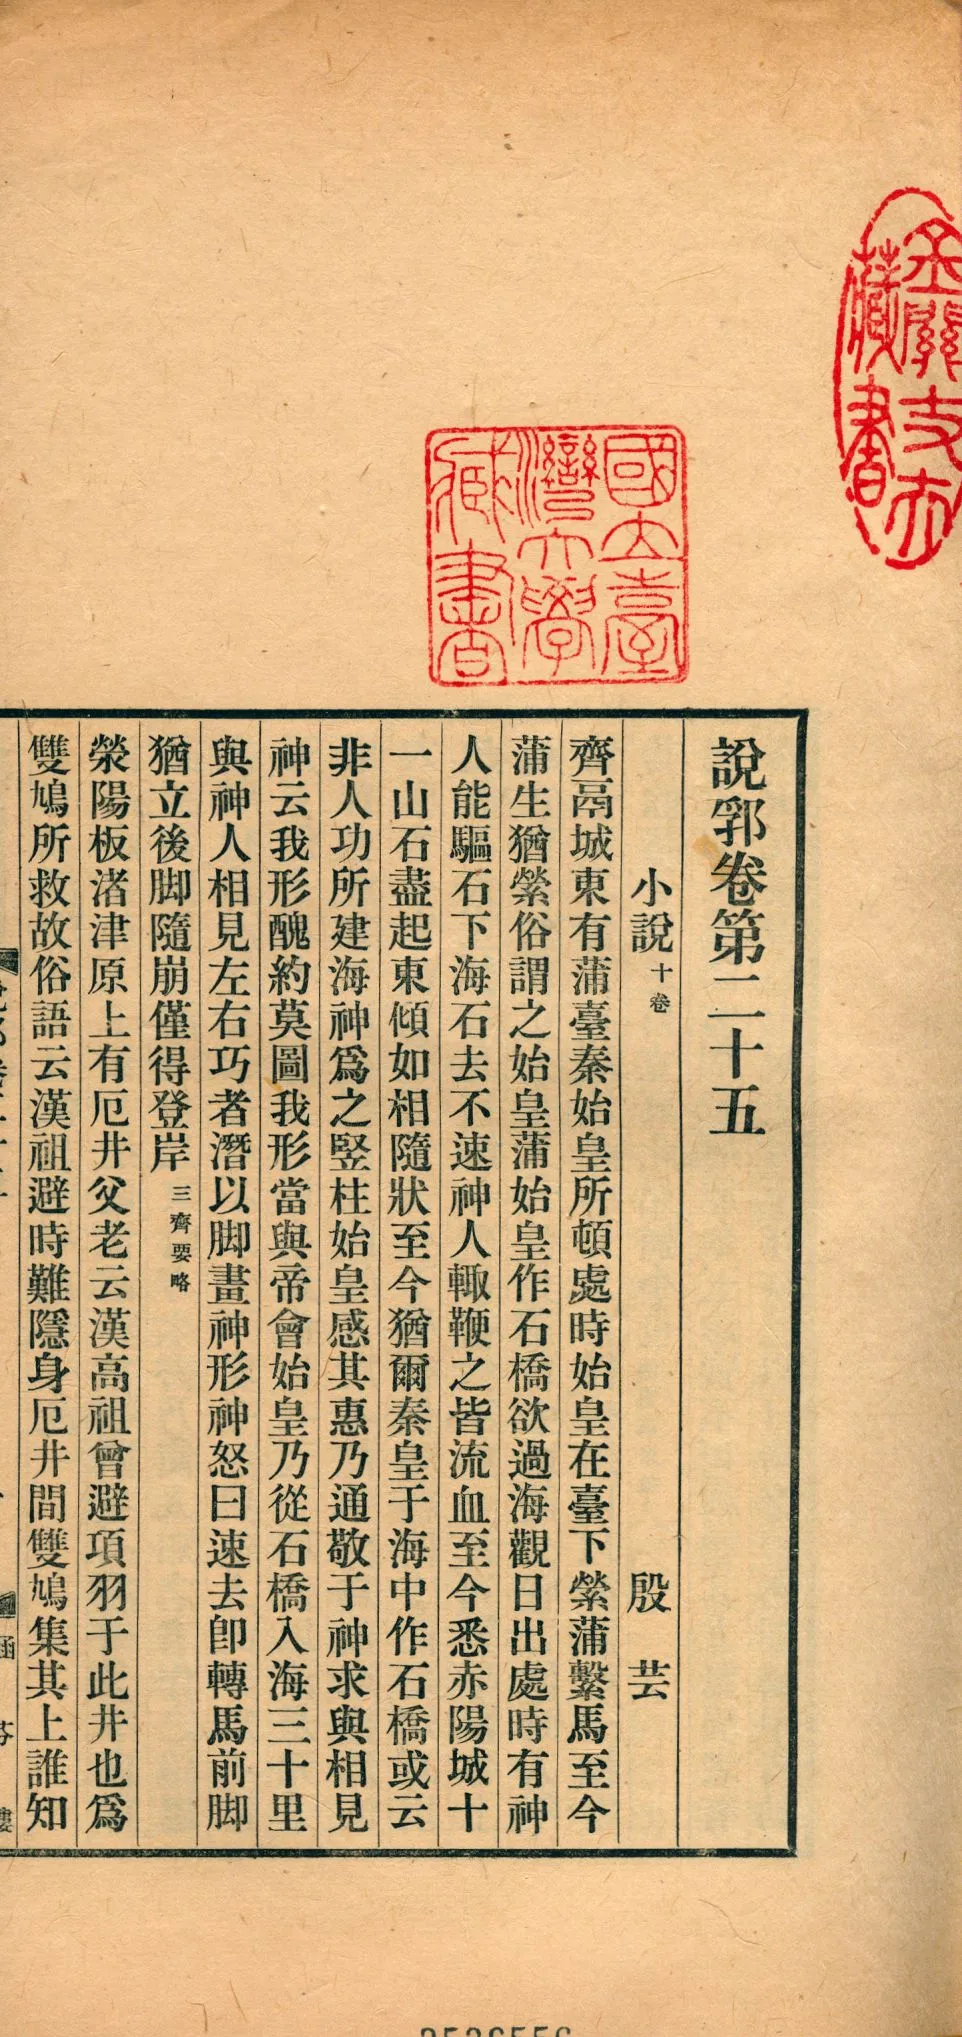 說郛卷第二十五
小說十卷 殷芸
齊鬲城東有蒲臺秦始皇所頓處時始皇在臺下縈蒲繫馬至今
蒲生猶縈俗謂之始皇蒲始皇作石橋欲過海觀日出處時有神
人能驅石下海石去不速神人輙鞭之皆流血至今悉赤陽城十
一山石盡起東傾如相隨狀至今猶爾秦皇于海中作石橋或云
非人功所建海神爲之竪柱始皇感其惠乃通敬于神求與相見
神云我形醜約莫圖我形當與帝會始皇乃從石橋入海三十里
與神人相見左右巧者潛以脚畫神形神怒曰速去卽轉馬前脚
猶立後脚隨崩僅得登岸三齊要略
滎陽板渚津原上有厄井父老云漢高祖曾避項羽于此井也爲
雙鳩所救故俗語云漢祖避時難隱身厄井間雙鳩集其上誰知
國立臺
灣大學
藏書
藏書
2536556